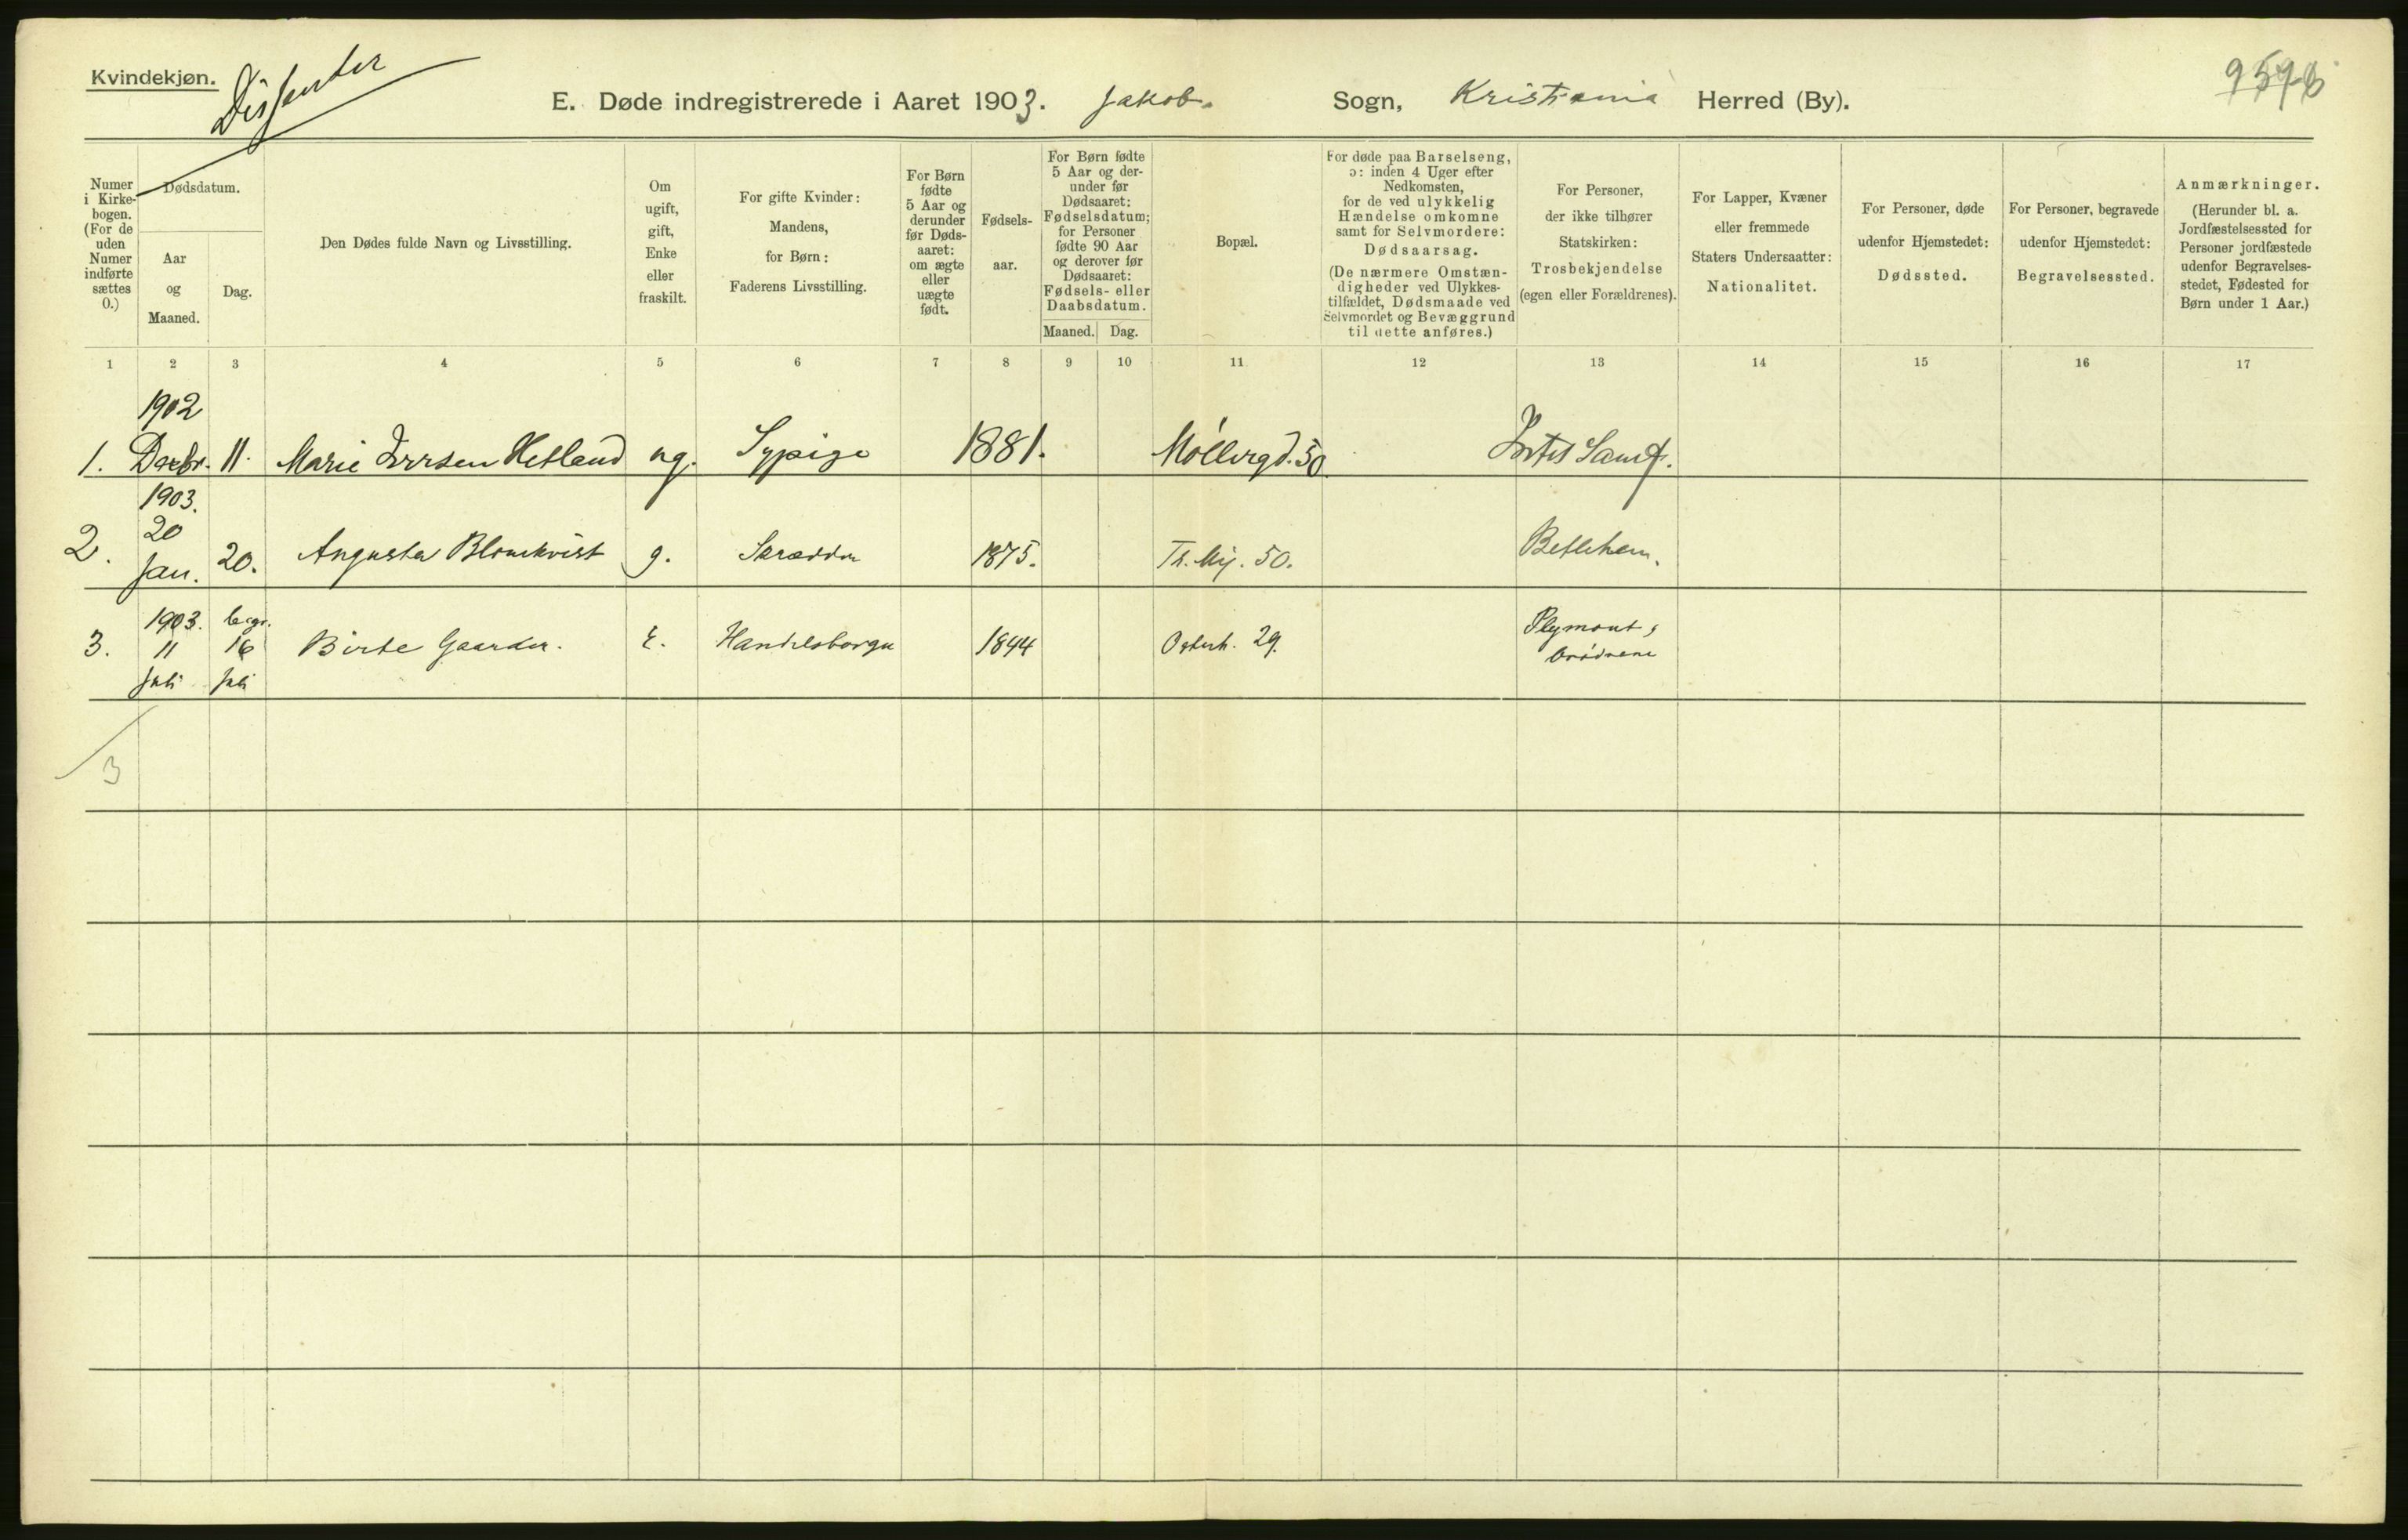 Kvindekjøn.
Dissenter
E. Døde indregistrerede i Aaret 1903. Jakobs Sogn, Kristiania Herred (By).
Numer i Kirke-bogen. (For de uden Numer indførte sættes 0.)
Dødsdatum.
Aar og Maaned.
Dag.
Den Dødes fulde Navn og Livsstilling.
Om ugift, gift, Enke eller fraskilt.
For gifte Kvinder: Mandens, for Børn: Faderens Livsstilling.
For Børn fødte 5 Aar og derunder før Døds-aaret: om ægte eller uægte født.
Fødsels-aar.
For Børn fødte 5 Aar og der-under før Dødsaaret: Fødselsdatum; for Personer fødte 90 Aar og derover før Dødsaaret: Fødsels- eller Daabsdatum.
Maaned. Dag.
Bopæl.
For døde paa Barselseng, ɔ: inden 4 Uger efter Nedkomsten, for de ved ulykkelig Hændelse omkomne samt for Selvmordere: Dødsaarsag. (De nærmere Omstæn-digheder ved Ulykkes-tilfældet, Dødsmaade ved Selvmordet og Bevæggrund til dette anføres.)
For Personer, der ikke tilhører Statskirken: Trosbekjendelse (egen eller Forældrenes).
For Lapper, Kvæner eller fremmede Staters Undersaatter: Nationalitet.
For Personer, døde udenfor Hjemstedet: Dødssted.
For Personer, begravede udenfor Hjemstedet: Begravelsessted.
Anmærkninger. (Herunder bl. a. Jordfæstelsessted for Personer jordfæstede udenfor Begravelses-stedet, Fødested for Børn under 1 Aar.)
1 2 3 4 5 6 7 8 9 10 11 12 13 14 15 16 17
1902
1. Decbr. 11. Marie Iversen Hetland ug. Sypige 1881. Møllergd. 50
1903.
2. 20 Jan. 20. Augusta Blomkvist g. Skrædder 1875. Th. Mij. 50. Betlehem.
1903. begr.
3. 11 Juli 16 Juli Birte Gaarder. E. Handelsborger 1844 Osterh. 29. Plymouts brødrene
3